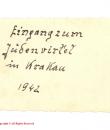 Eingang zum
Judenvirtel
in Krakau
1942